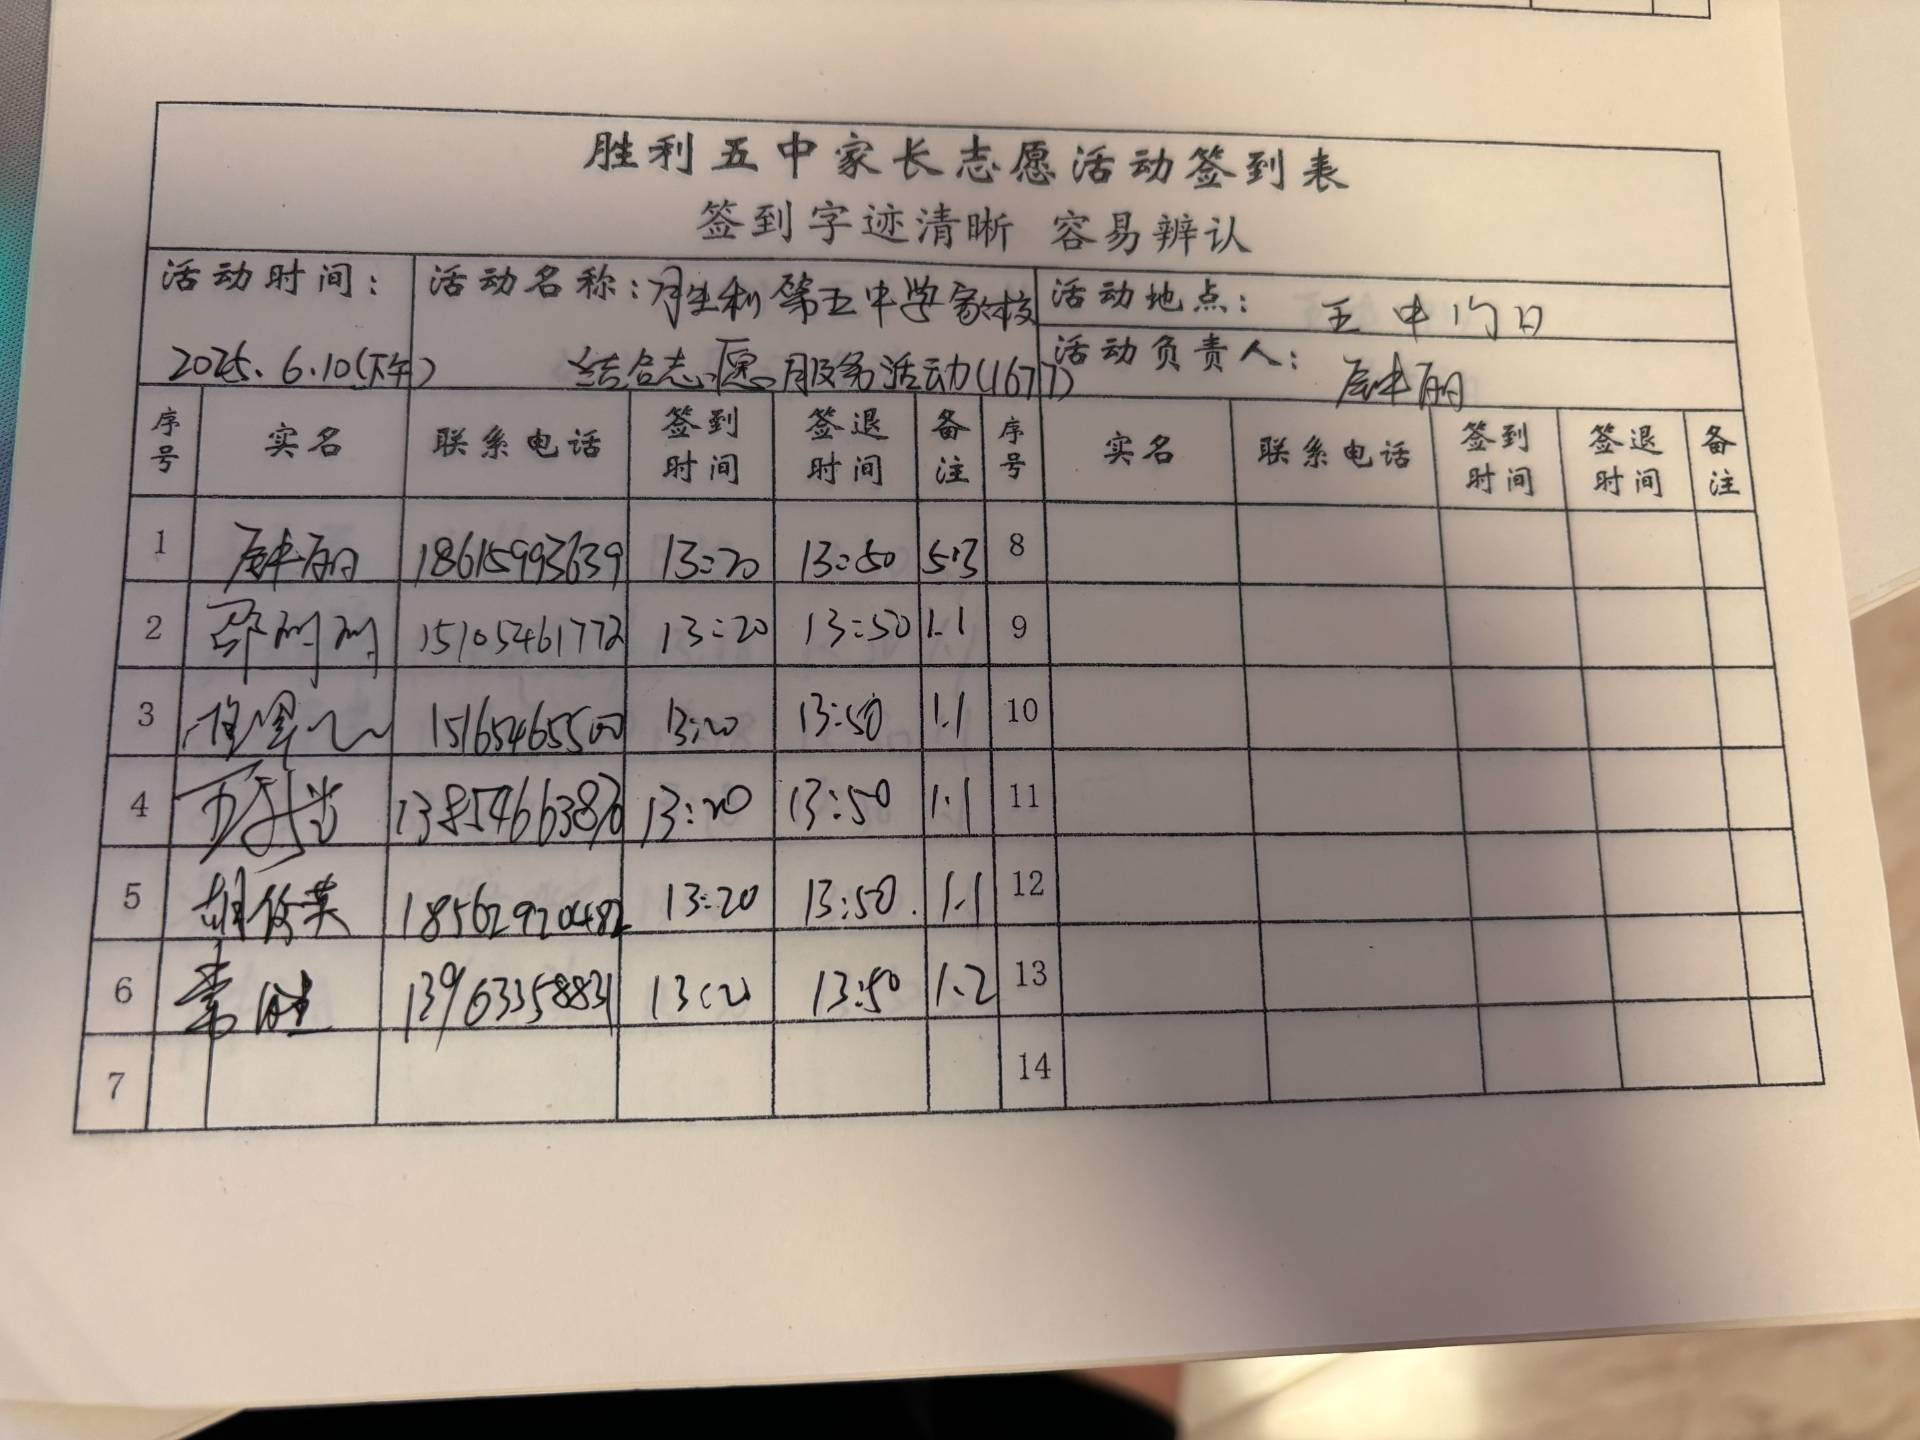 胜利五中家长志愿活动签到表
签到字迹清晰 容易辨认
活动时间： 活动名称：胜利第五中学家校 活动地点：五中门口
2025.6.10(下午) 结合志愿服务活动(1677) 活动负责人：
序号 实名 联系电话 签到时间 签退时间 备注 序号 实名 联系电话 签到时间 签退时间 备注
1 18615993639 13:20 13:50 5.3 8
2 邵 15105461772 13:20 13:50 1.1 9
3 15165465500 13:20 13:50 1.1 10
4 13:20 13:50 1.1 11
5 胡俊英 18562920482 13:20 13:50. 1.1 12
6 胜 13963358831 13:20 13:50 1.2 13
7 14